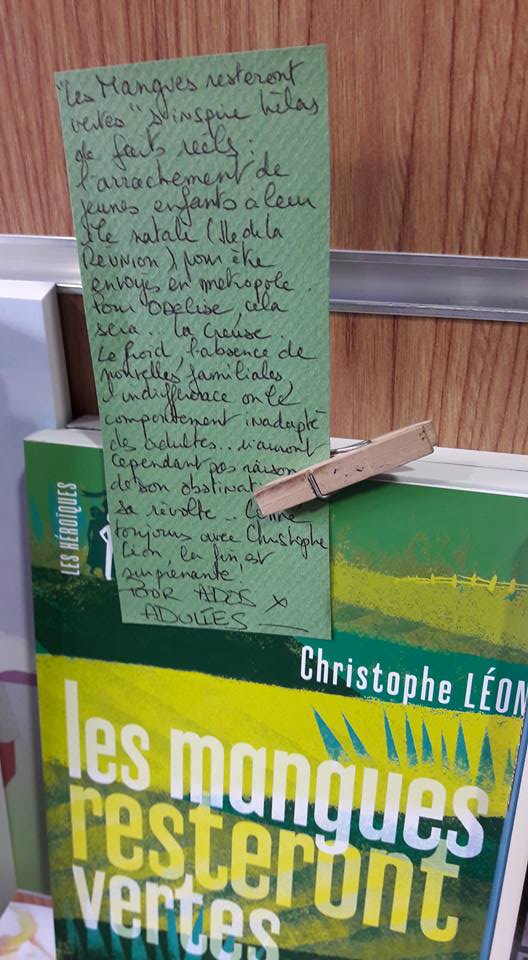 "Les Mangues resteront
vertes" s'inspire hélas
de faits réels :
l'arrachement de
jeunes enfants à leur
île natale (Ile de la
Réunion) pour être
envoyés en métropole.
Pour Odélise, cela
sera.. la Creuse.
Le froid, l'absence de
nouvelles familiales,
l'indifférence ou le
comportement inadapté
des adultes.. n'auront
cependant pas raison
de son obstinat
sa révolte.. Comme
toujours avec Christophe
Léon la fin est
surprenante,
POUR ADOS X
ADULTES
LES HÉROÏQUES
Christophe LÉON
les mangues
resteront
vertes